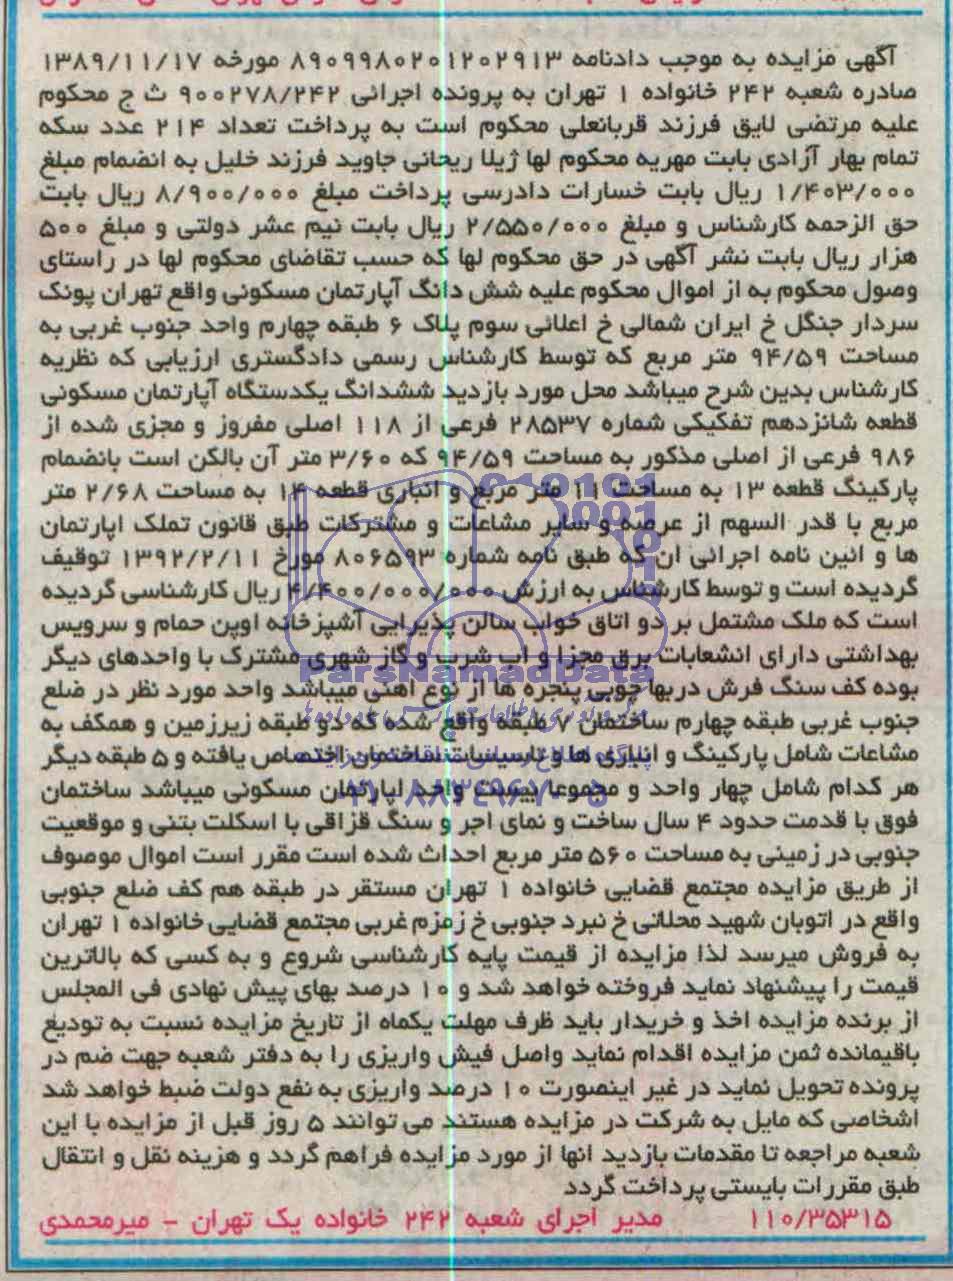 آگهی مزایده به موجب دادنامه ۸۹۰۹۹۸۰۲۰۱۲۰۲۹۱۳ مورخه ۱۳۸۹/۱۱/۱۷
صادره شعبه ۲۴۲ خانواده ۱ تهران به پرونده اجرائی ۹۰۰۲۷۸/۲۴۲ ث ج محکوم
علیه مرتضی لایق فرزند قربانعلی محکوم است به پرداخت تعداد ۲۱۴ عدد سکه
تمام بهار آزادی بابت مهریه محکوم لها ژیلا ریحانی جاوید فرزند خلیل به انضمام مبلغ
۱/۴۰۳/۰۰۰ ریال بابت خسارات دادرسی پرداخت مبلغ ۸/۹۰۰/۰۰۰ ریال بابت
حق الزحمه کارشناس و مبلغ ۲/۵۵۰/۰۰۰ ریال بابت نیم عشر دولتی و مبلغ ۵۰۰
هزار ریال بابت نشر آگهی در حق محکوم لها که حسب تقاضای محکوم لها در راستای
وصول محکوم به از اموال محکوم علیه شش دانگ آپارتمان مسکونی واقع تهران پونک
سردار جنگل خ ایران شمالی خ اعلائی سوم پلاک ۶ طبقه چهارم واحد جنوب غربی به
مساحت ۹۴/۵۹ متر مربع که توسط کارشناس رسمی دادگستری ارزیابی که نظریه
کارشناس بدین شرح میباشد محل مورد بازدید ششدانگ یکدستگاه آپارتمان مسکونی
قطعه شانزدهم تفکیکی شماره ۲۸۵۳۷ فرعی از ۱۱۸ اصلی مفروز و مجزی شده از
۹۸۶ فرعی از اصلی مذکور به مساحت ۹۴/۵۹ که ۳/۶۰ متر آن بالکن است بانضمام
پارکینگ قطعه ۱۳ به مساحت ۱۱ متر مربع و انباری قطعه ۱۴ به مساحت ۲/۶۸ متر
مربع با قدر السهم از عرصه و سایر مشاعات و مشترکات طبق قانون تملک اپارتمان
ها و ائین نامه اجرائی ان که طبق نامه شماره ۸۰۶۵۹۳ مورخ ۱۳۹۲/۲/۱۱ توقیف
گردیده است و توسط کارشناس به ارزش ۴/۴۰۰/۰۰۰/۰۰۰ ریال کارشناسی گردیده
است که ملک مشتمل بر دو اتاق خواب سالن پذیرایی آشپزخانه اوپن حمام و سرویس
بهداشتی دارای انشعابات برق مجزا و اب شرب و گاز شهری مشترک با واحدهای دیگر
ParsNamadData
بوده کف سنگ فرش دربها چوبی پنجره ها از نوع اهنی میباشد واحد مورد نظر در ضلع
جنوب غربی طبقه چهارم ساختمان ۷ طبقه واقع شده که دو طبقه زیرزمین و همکف به
مشاعات شامل پارکینگ و انباری ها و تاسیسات ساختمان اختصاص یافته و ۵ طبقه دیگر
هر کدام شامل چهار واحد و مجموعا بیست واحد اپارتمان مسکونی میباشد ساختمان
۰۲۱-۸۸۳۴۹۶۷۰-۵
فوق با قدمت حدود ۴ سال ساخت و نمای اجر و سنگ قزاقی با اسکلت بتنی و موقعیت
جنوبی در زمینی به مساحت ۵۶۰ متر مربع احداث شده است مقرر است اموال موصوف
از طریق مزایده مجتمع قضایی خانواده ۱ تهران مستقر در طبقه هم کف ضلع جنوبی
واقع در اتوبان شهید محلاتی خ نبرد جنوبی خ زمزم غربی مجتمع قضایی خانواده ۱ تهران
به فروش میرسد لذا مزایده از قیمت پایه کارشناسی شروع و به کسی که بالاترین
قیمت را پیشنهاد نماید فروخته خواهد شد و ۱۰ درصد بهای پیش نهادی فی المجلس
از برنده مزایده اخذ و خریدار باید ظرف مهلت یکماه از تاریخ مزایده نسبت به تودیع
باقیمانده ثمن مزایده اقدام نماید واصل فیش واریزی را به دفتر شعبه جهت ضم در
پرونده تحویل نماید در غیر اینصورت ۱۰ درصد واریزی به نفع دولت ضبط خواهد شد
اشخاصی که مایل به شرکت در مزایده هستند می توانند ۵ روز قبل از مزایده با این
شعبه مراجعه تا مقدمات بازدید انها از مورد مزایده فراهم گردد و هزینه نقل و انتقال
طبق مقررات بایستی پرداخت گردد
۱۱۰/۳۵۳۱۵ مدیر اجرای شعبه ۲۴۲ خانواده یک تهران - میرمحمدی